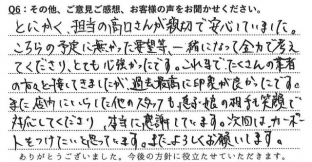 Q6：その他、ご意見ご感想、お客様の声をお聞かせください。
とにかく、担当の高口さんが親切で安心していました。
こちらの予定に無かった要望等、一緒になって全力で考え
てくださり、とても心強かったです。これまでたくさんの業者
の方と接してきましたが過去最高に印象が良かったです。
また店内にいらした他のスタッフも息子・娘の相手も笑顔で
対応してくださり、本当に感謝しています。次回は、カーポー
トをつけたいと思っています。また、よろしくお願いします。
ありがとうございました。今後の方針に役立たせていただきます。